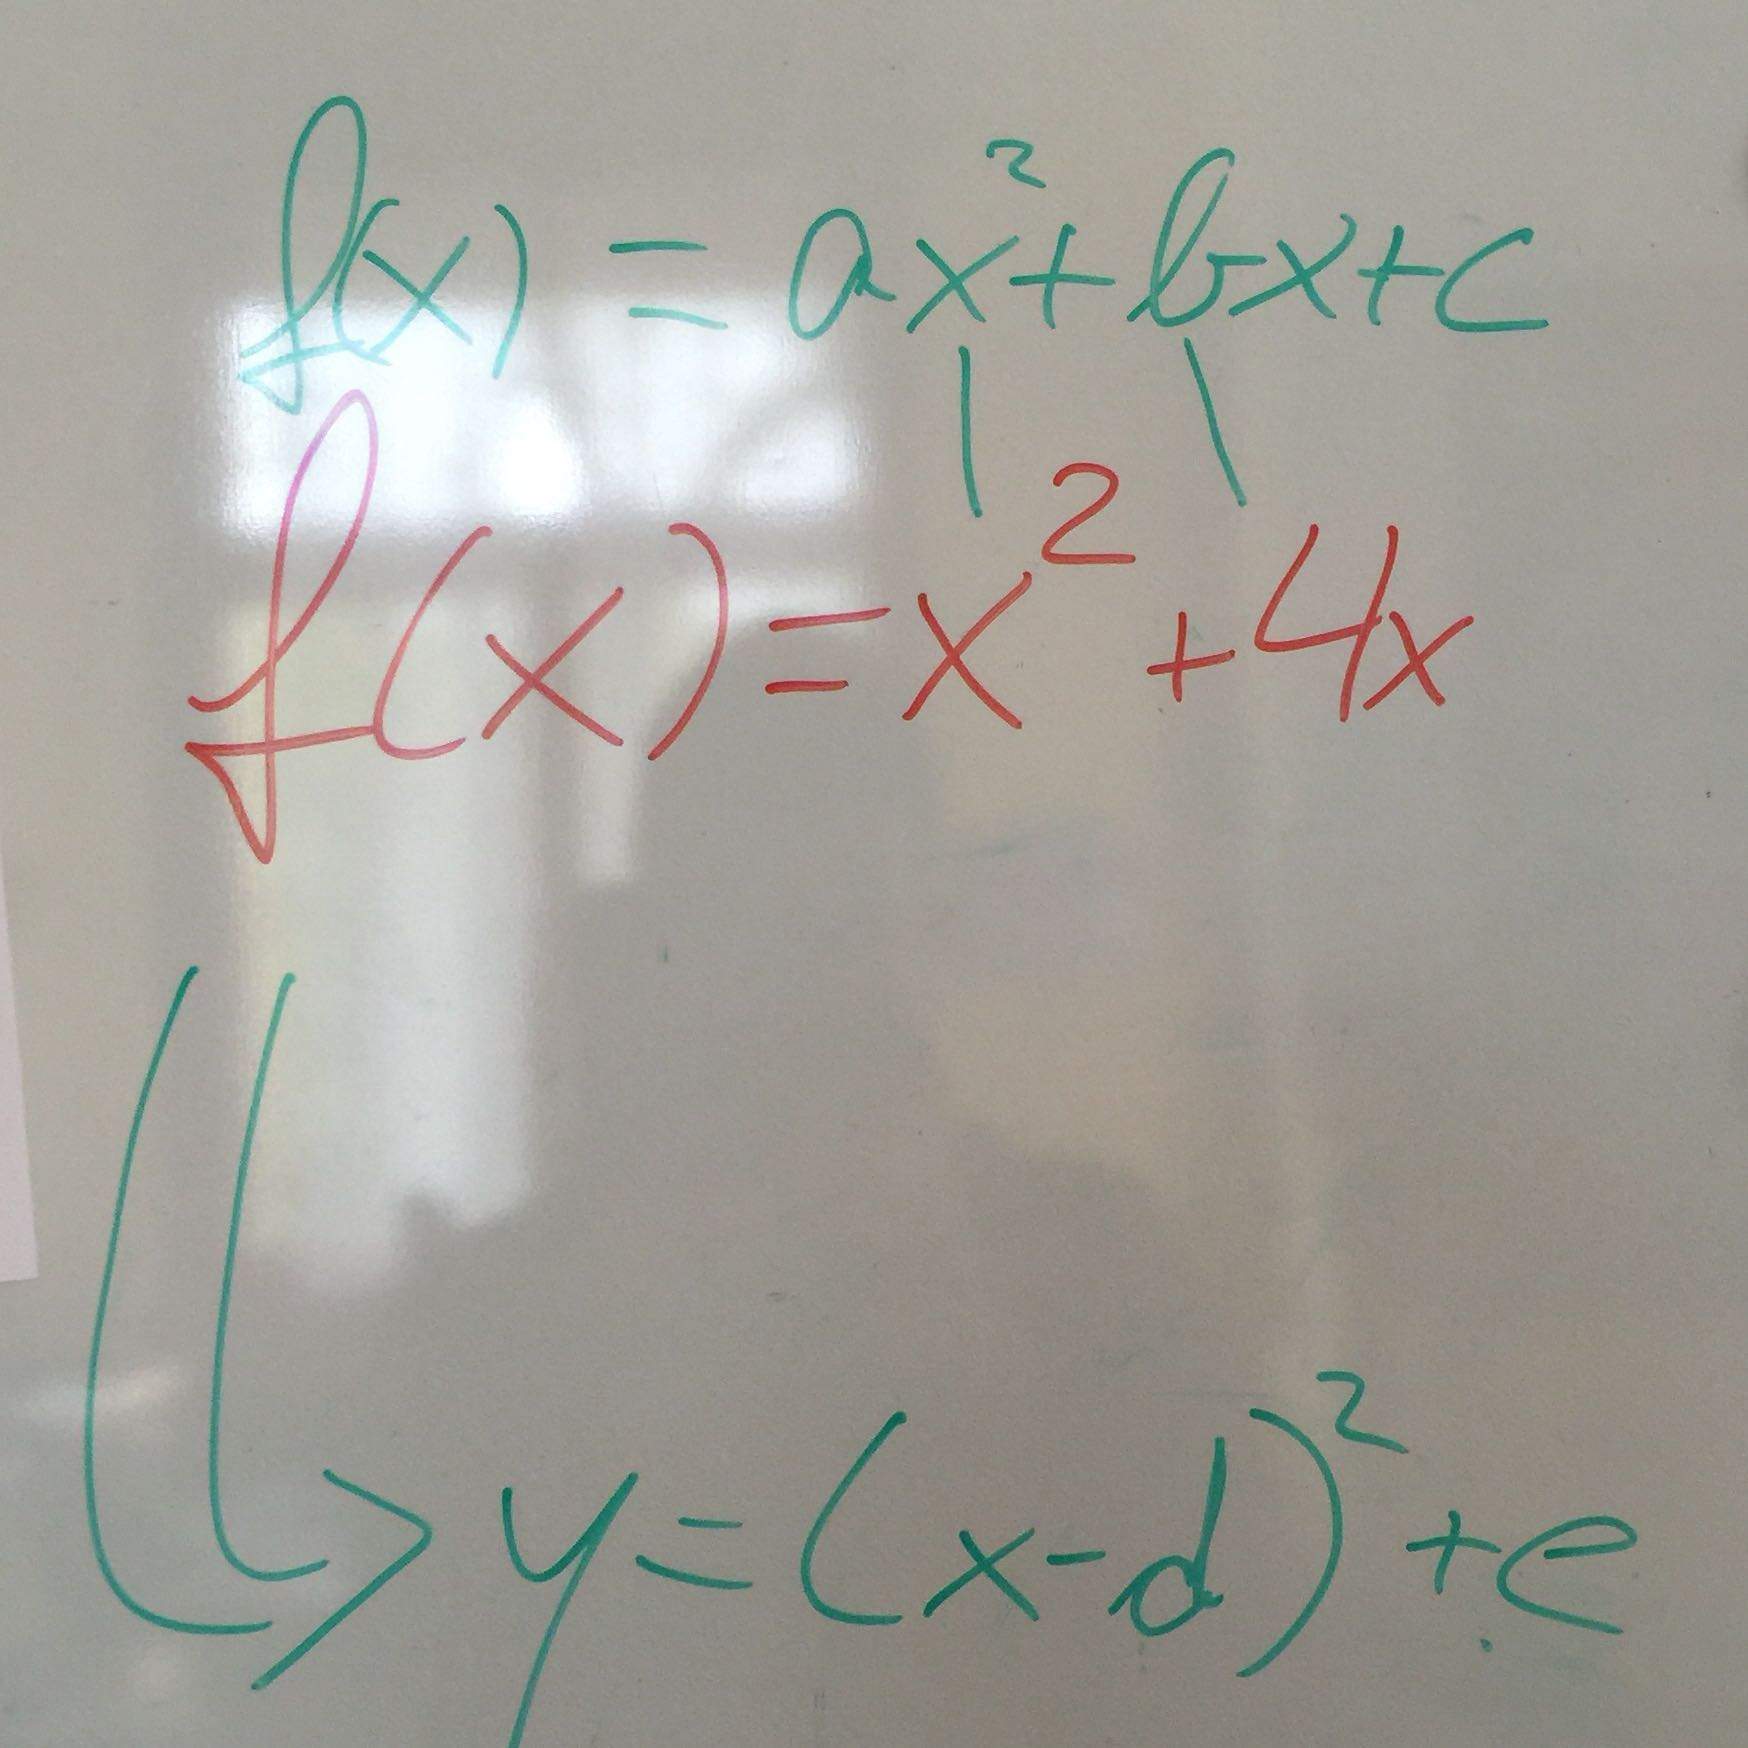 f(x) = ax² + bx + c
f(x) = x² + 4x
y = (x-d)² + e